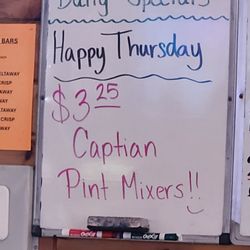 Daily Specials
Happy Thursday
$3.25
Captian
Pint Mixers!!
BARS
LTAWAY
CRISP
AWAY
AWAY
CRISP
TAWAY
EXPO
EXPO